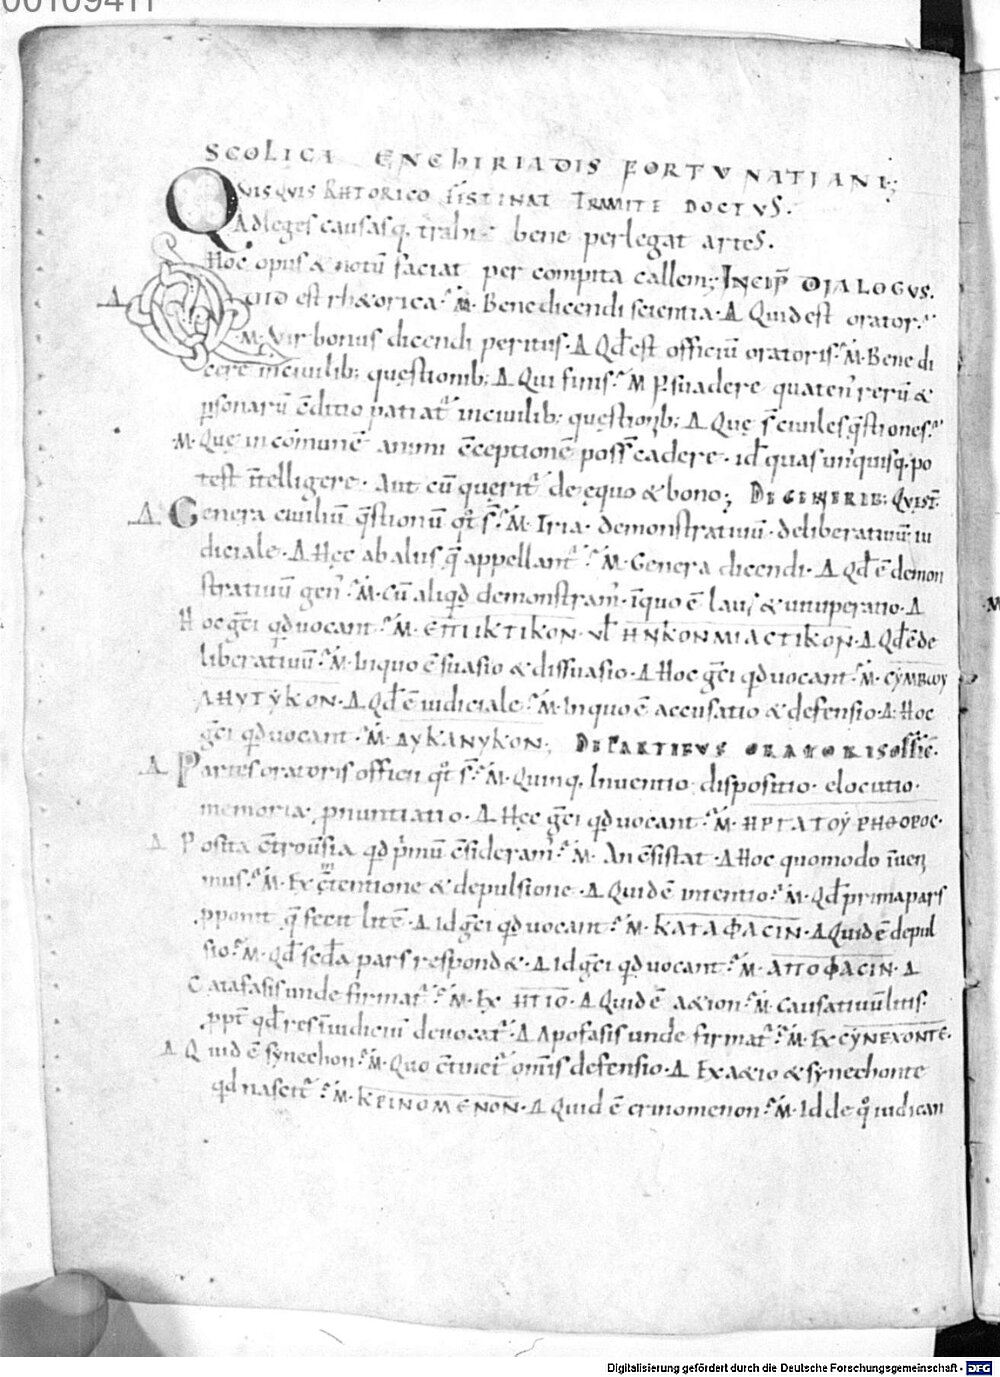 00109411
SCOLICA ENCHIRIADIS FORTVNATIANI;
QVISQVIS RHTORICO FESTINAT TRAMITE DOCTVS.
Ad leges causasq. trahi bene perlegat artes.
Hoc opus & notū faciat per compita callem; INCIP̄ DIALOGUS.
Δ QUID est rh&orica? M̄. Bene dicendi scientia. Δ Quid est orator?
M̄. Vir bonus dicendi peritus. Δ Qd̄ est officiū oratoris? M̄. Bene di
cere in ciuilib; quęstionib; Δ Qui finis? M̄ Psuadere quaten' rerū &
psonarū c̄ditio patiat' in ciuilib; quęstionib; Δ Quę s̄ ciuiles q̄stiones?
M̄. Quę in cōmunē animi c̄ceptionē poss̄ cadere. id quas un'quisq. po
test īntelligere. Aut cū querit' de ęquo & bono; DE GENERIB; QVEST̄.
Δ Genera ciuiliū q̄stionū qt̄ s̄? M̄. Tria. demonstratiuū. deliberatiuū. iu
diciale. Δ Hęc ab aliis q̄ appellant'? M̄. Genera dicendi. Δ Qd̄ ē demon
stratiuū gen'? M̄. Cū aliqd̄ demonstram'. īn quo ē laus & uituperatio. Δ
Hoc gc̄i qd̄ uocant? M̄. ΕΠΙΙΚΤΙΚΟΝ. vl̄ ΗΝΚΟΝΜΙΑCΤΙΚΟΝ. Δ Qd̄ ē de
liberatiuū? M̄. In quo ē suasio & dissuasio. Δ Hoc gc̄i qd̄ uocant? M̄. CΥΜΒΩΥ
ΛΗΥΤΥΚΟΝ. Δ Qd̄ ē iudiciale? M̄. In quo ē accusatio & defensio. Δ Hoc
gc̄i qd̄ uocant? M̄. ΔΥΚΑΝΥΚΟΝ; DE PARTIBVS ORATORIS OFFIC̄.
Δ Partes oratoris officii qt̄ s̄? M̄. Quinq. Inuentio. dispositio. elocutio.
memoria. pnuntiatio. Δ Hęc gc̄i qd̄ uocant? M̄. ΗΡΓΑΤΟΥ ΡΗΘΟΡΟC.
Δ Posita c̄trouersia qd̄ pmū c̄sideram'? M̄. An c̄sistat. Δ Hoc quomodo īuen
mus? M̄. Ex c̄tentione & depulsione. Δ Quid ē intentio? M̄. Qd̄ prima pars
pponit q̄ fecit litē. Δ Id gc̄i qd̄ uocant? M̄. ΚΑΤΑΦΑCΙΝ. Δ Quid ē depul
sio? M̄. Qd̄ scd̄a pars respond&. Δ Id gc̄i qd̄ uocant? M̄. ΑΠΟΦΑCΙΝ. Δ
Catafasis unde firmat'? M̄. Ex ΗΤΙΟ. Δ Quid ē a&ion? M̄. Causatiuū litis.
ppt̄ qd̄ res ī iudiciū deuocat'. Δ Apofasis unde firmat'? M̄. Ex CΥΝΕΧΟΝΤΕ.
Δ Quid ē synechon? M̄. Quo c̄tinet' om̄is defensio. Δ Ex a&io & synechonte
qd̄ nascit'? M̄. ΚΡΙΝΟΜΕΝΟΝ. Δ Quid ē crinomenon? M̄. Id de qo iudican
Digitalisierung gefördert durch die Deutsche Forschungsgemeinschaft - DFG